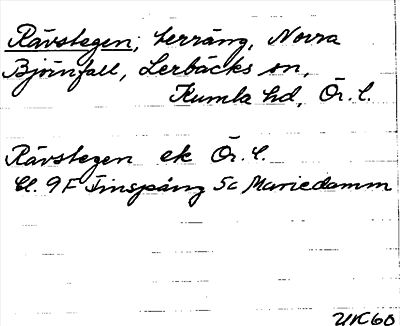 Rävstegen, terräng, Norra
Björnfall, Lerbäcks sn,
Kumla hd, Ör. l.
Rävstegen ek Ör. l.
bl. 9F Finspång 5c Mariedamm
UK60